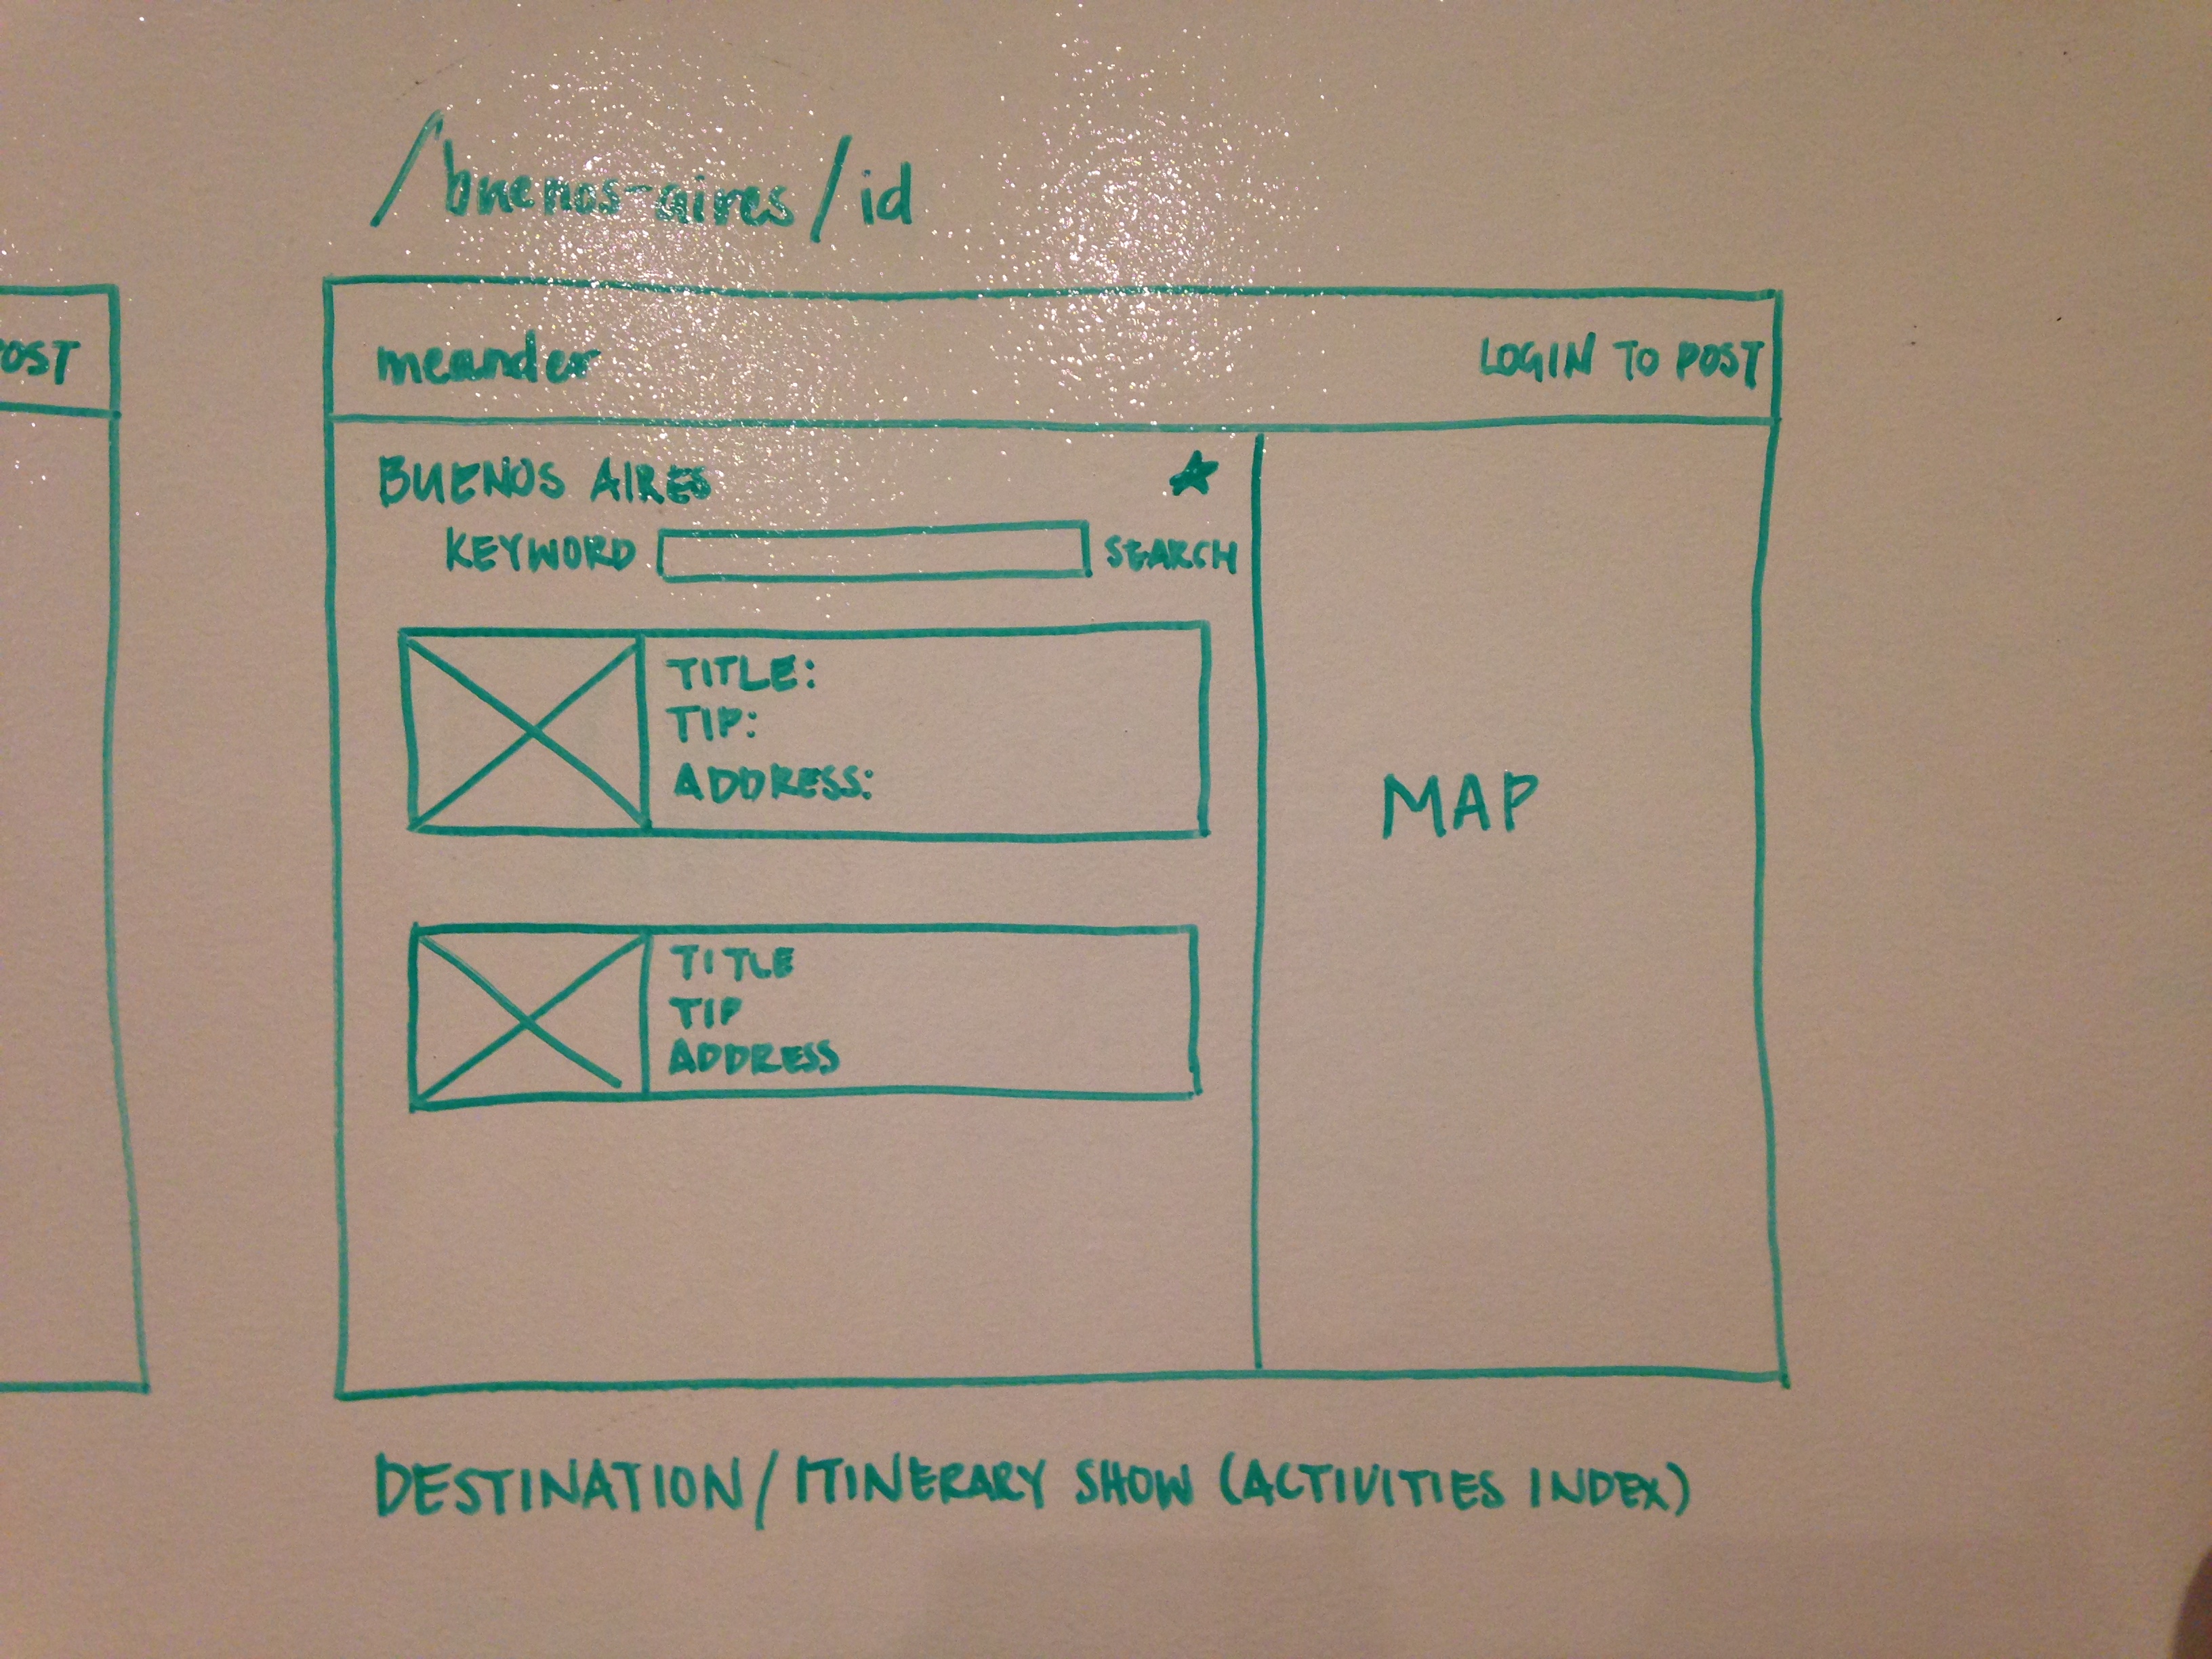 /buenos-aires/id
OST
meander
LOGIN TO POST
BUENOS AIRES
KEYWORD SEARCH
TITLE:
TIP:
ADDRESS:
MAP
TITLE
TIP
ADDRESS
DESTINATION/ITINERARY SHOW (ACTIVITIES INDEX)